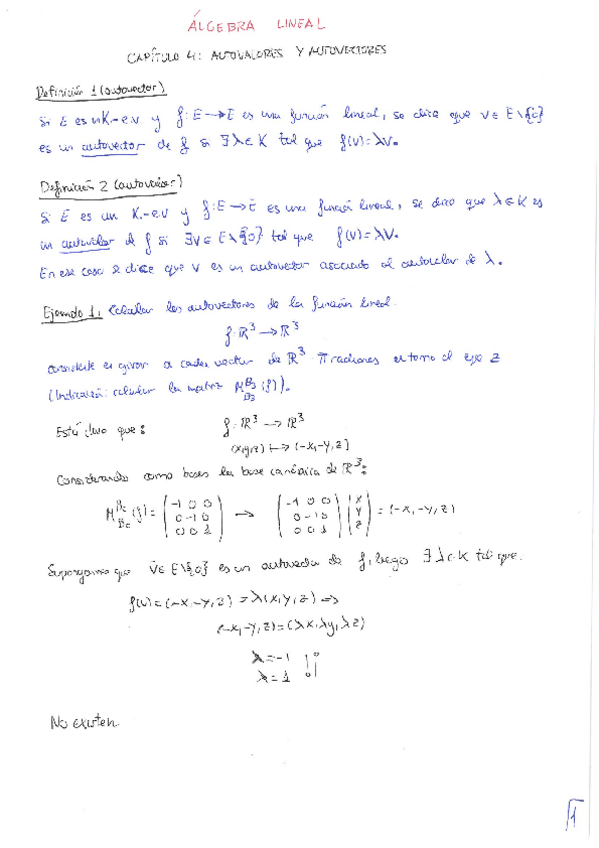 ÁLGEBRA LINEAL
CAPÍTULO 4: AUTOVALORES Y AUTOVECTORES
Definición 1 (autovector)
Si E es un K-e.v y f: E → E es una función lineal, se dice que v ∈ E\{0}
es un autovector de f si ∃ λ ∈ K tal que f(v)=λv.
Definición 2 (autovalor)
Si E es un K-e.v y f: E → E es una función lineal, se dice que λ ∈ K es
un autovalor de f si ∃ v ∈ E\{0} tal que f(v)=λv.
En ese caso se dice que v es un autovector asociado al autovalor de λ.
Ejemplo 1. Calcular los autovectores de la función lineal.
f: ℝ³ → ℝ³
consistente en girar a cada vector de ℝ³ π radianes en torno al eje z
(Indicación: calcular la matriz M^{B_3}_{B_3}(f)).
Está claro que: f: ℝ³ → ℝ³
(x,y,z) ↦ (-x,-y,z)
Considerando como bases la base canónica de ℝ³:
M^{B_c}_{B_c}(f) = (-1 0 0 / 0 -1 0 / 0 0 1) → (-1 0 0 / 0 -1 0 / 0 0 1) (x / y / z) = (-x,-y,z)
Supongamos que v ∈ E\{0} es un autovector de f, luego ∃ λ ∈ K tal que.
f(v)=(-x,-y,z) = λ(x,y,z) ⇒
(-x,-y,z)=(λx,λy,λz)
λ=-1
λ=1 ¡!
No existen.
1